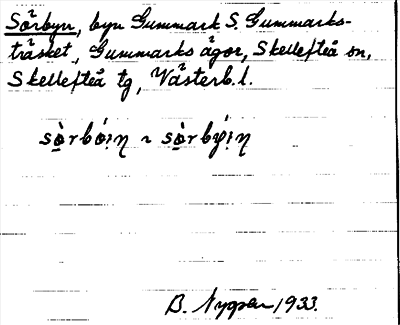 Sörbyn, byn Gummark S. Gummarks-
träsket, Gummarks ägor, Skellefteå sn,
Skellefteå tg, Västerb. l.
sòrbó̤iη ~ sòrbý̤iη
B. Nygren 1933.